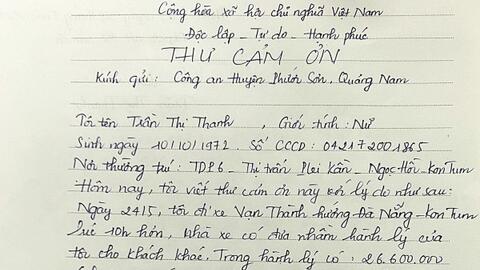 Cộng hòa xã hội chủ nghĩa Việt Nam
Độc lập - Tự do - Hạnh phúc
THƯ CẢM ƠN
Kính gửi : Công an Huyện Phước Sơn, Quảng Nam
Tôi tên Trần Thị Thanh , Giới tính : Nữ
Sinh ngày 10/10/1972 . Số CCCD : 042172001865
Nơi thường trú : TDP6 - Thị trấn Plei Kần - Ngọc Hồi - Kon Tum
Hôm nay, tôi viết thư cảm ơn này với lý do như sau:
Ngày 24/5, tôi đi xe Vạn Thành hướng Đà Nẵng - Kon Tum
lúc 10h hơn, Nhà xe có đưa nhầm hành lý của
tôi cho khách khác. Trong hành lý có : 26.600.000